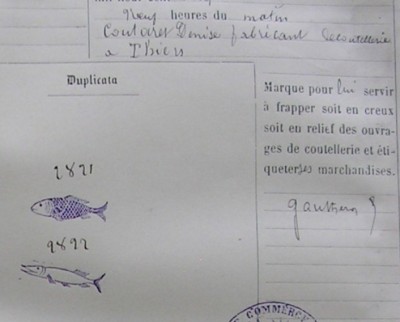 neuf heures du matin
Coutaret Denise fabricant de coutellerie
a Thiers
Duplicata
2821
9892
Marque pour lui servir
à frapper soit en creux
soit en relief des ouvra-
ges de coutellerie et éti-
queter ses marchandises.
COMMERC